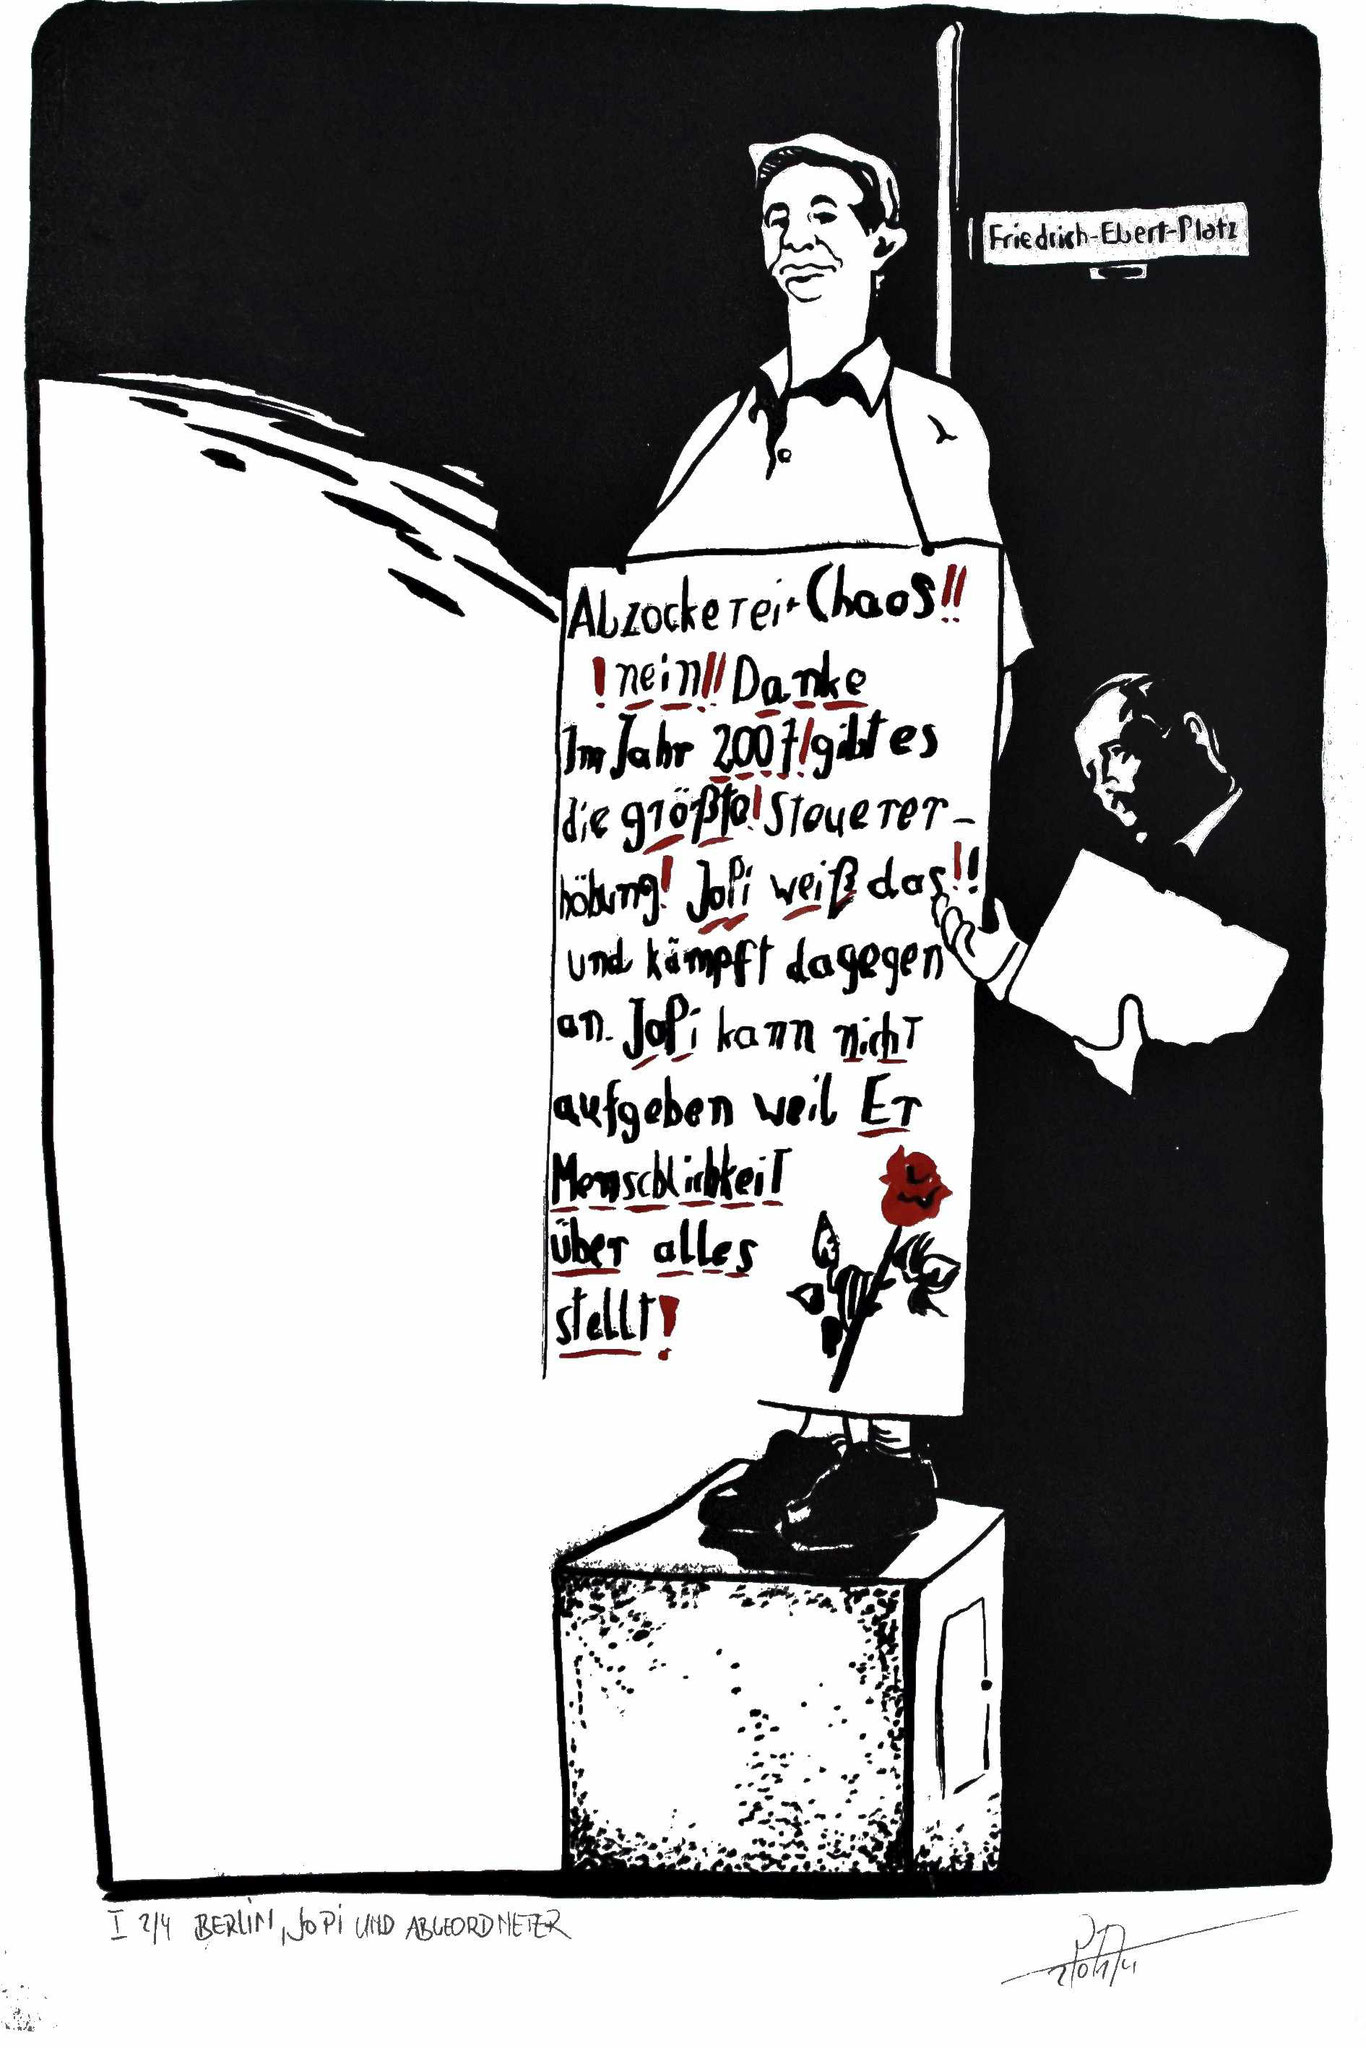 Friedrich-Ebert-Platz
Abzockerei + Chaos!!
! nein!! Danke
Im Jahr 2007! gibt es
die größte! Steuerer-
höhung! JoPi weiß das!!
und kämpft dagegen
an. JoPi kann nicht
aufgeben weil Er
Menschlichkeit
über alles
stellt!
I 2/4 BERLIN, JoPi UND ABGEORDNETER